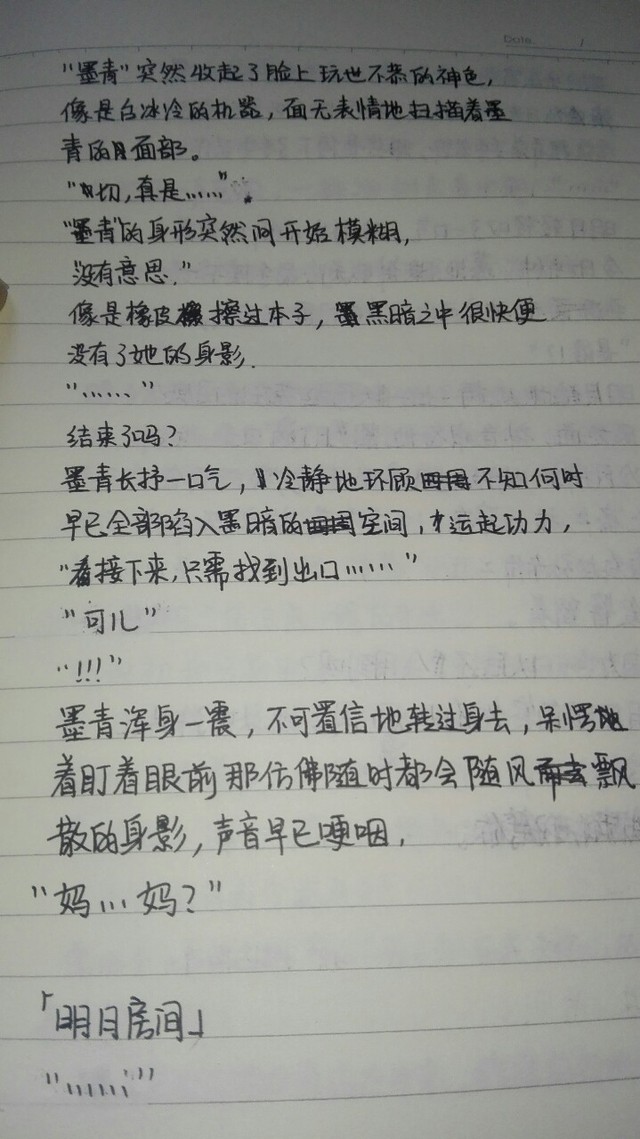 Date. /
"墨青"突然收起了脸上玩世不恭的神色，
像是台冰冷的机器，面无表情地扫描着墨
青的面部。
"切，真是……"。
"墨青"的身形突然间开始模糊，
"没有意思."
像是橡皮擦过本子，黑暗之中很快便
没有了她的身影.
"……"
结束了吗？
墨青长抒一口气，冷静地环顾不知何时
早已全部陷入黑暗的空间，运起功力，
"接下来，只需找到出口……"
"可儿"
"!!!"
墨青浑身一震，不可置信地转过身去，呆愕
着盯着眼前那仿佛随时都会随风飘
散的身影，声音早已哽咽，
"妈…妈？"
「明日房间」
"……"